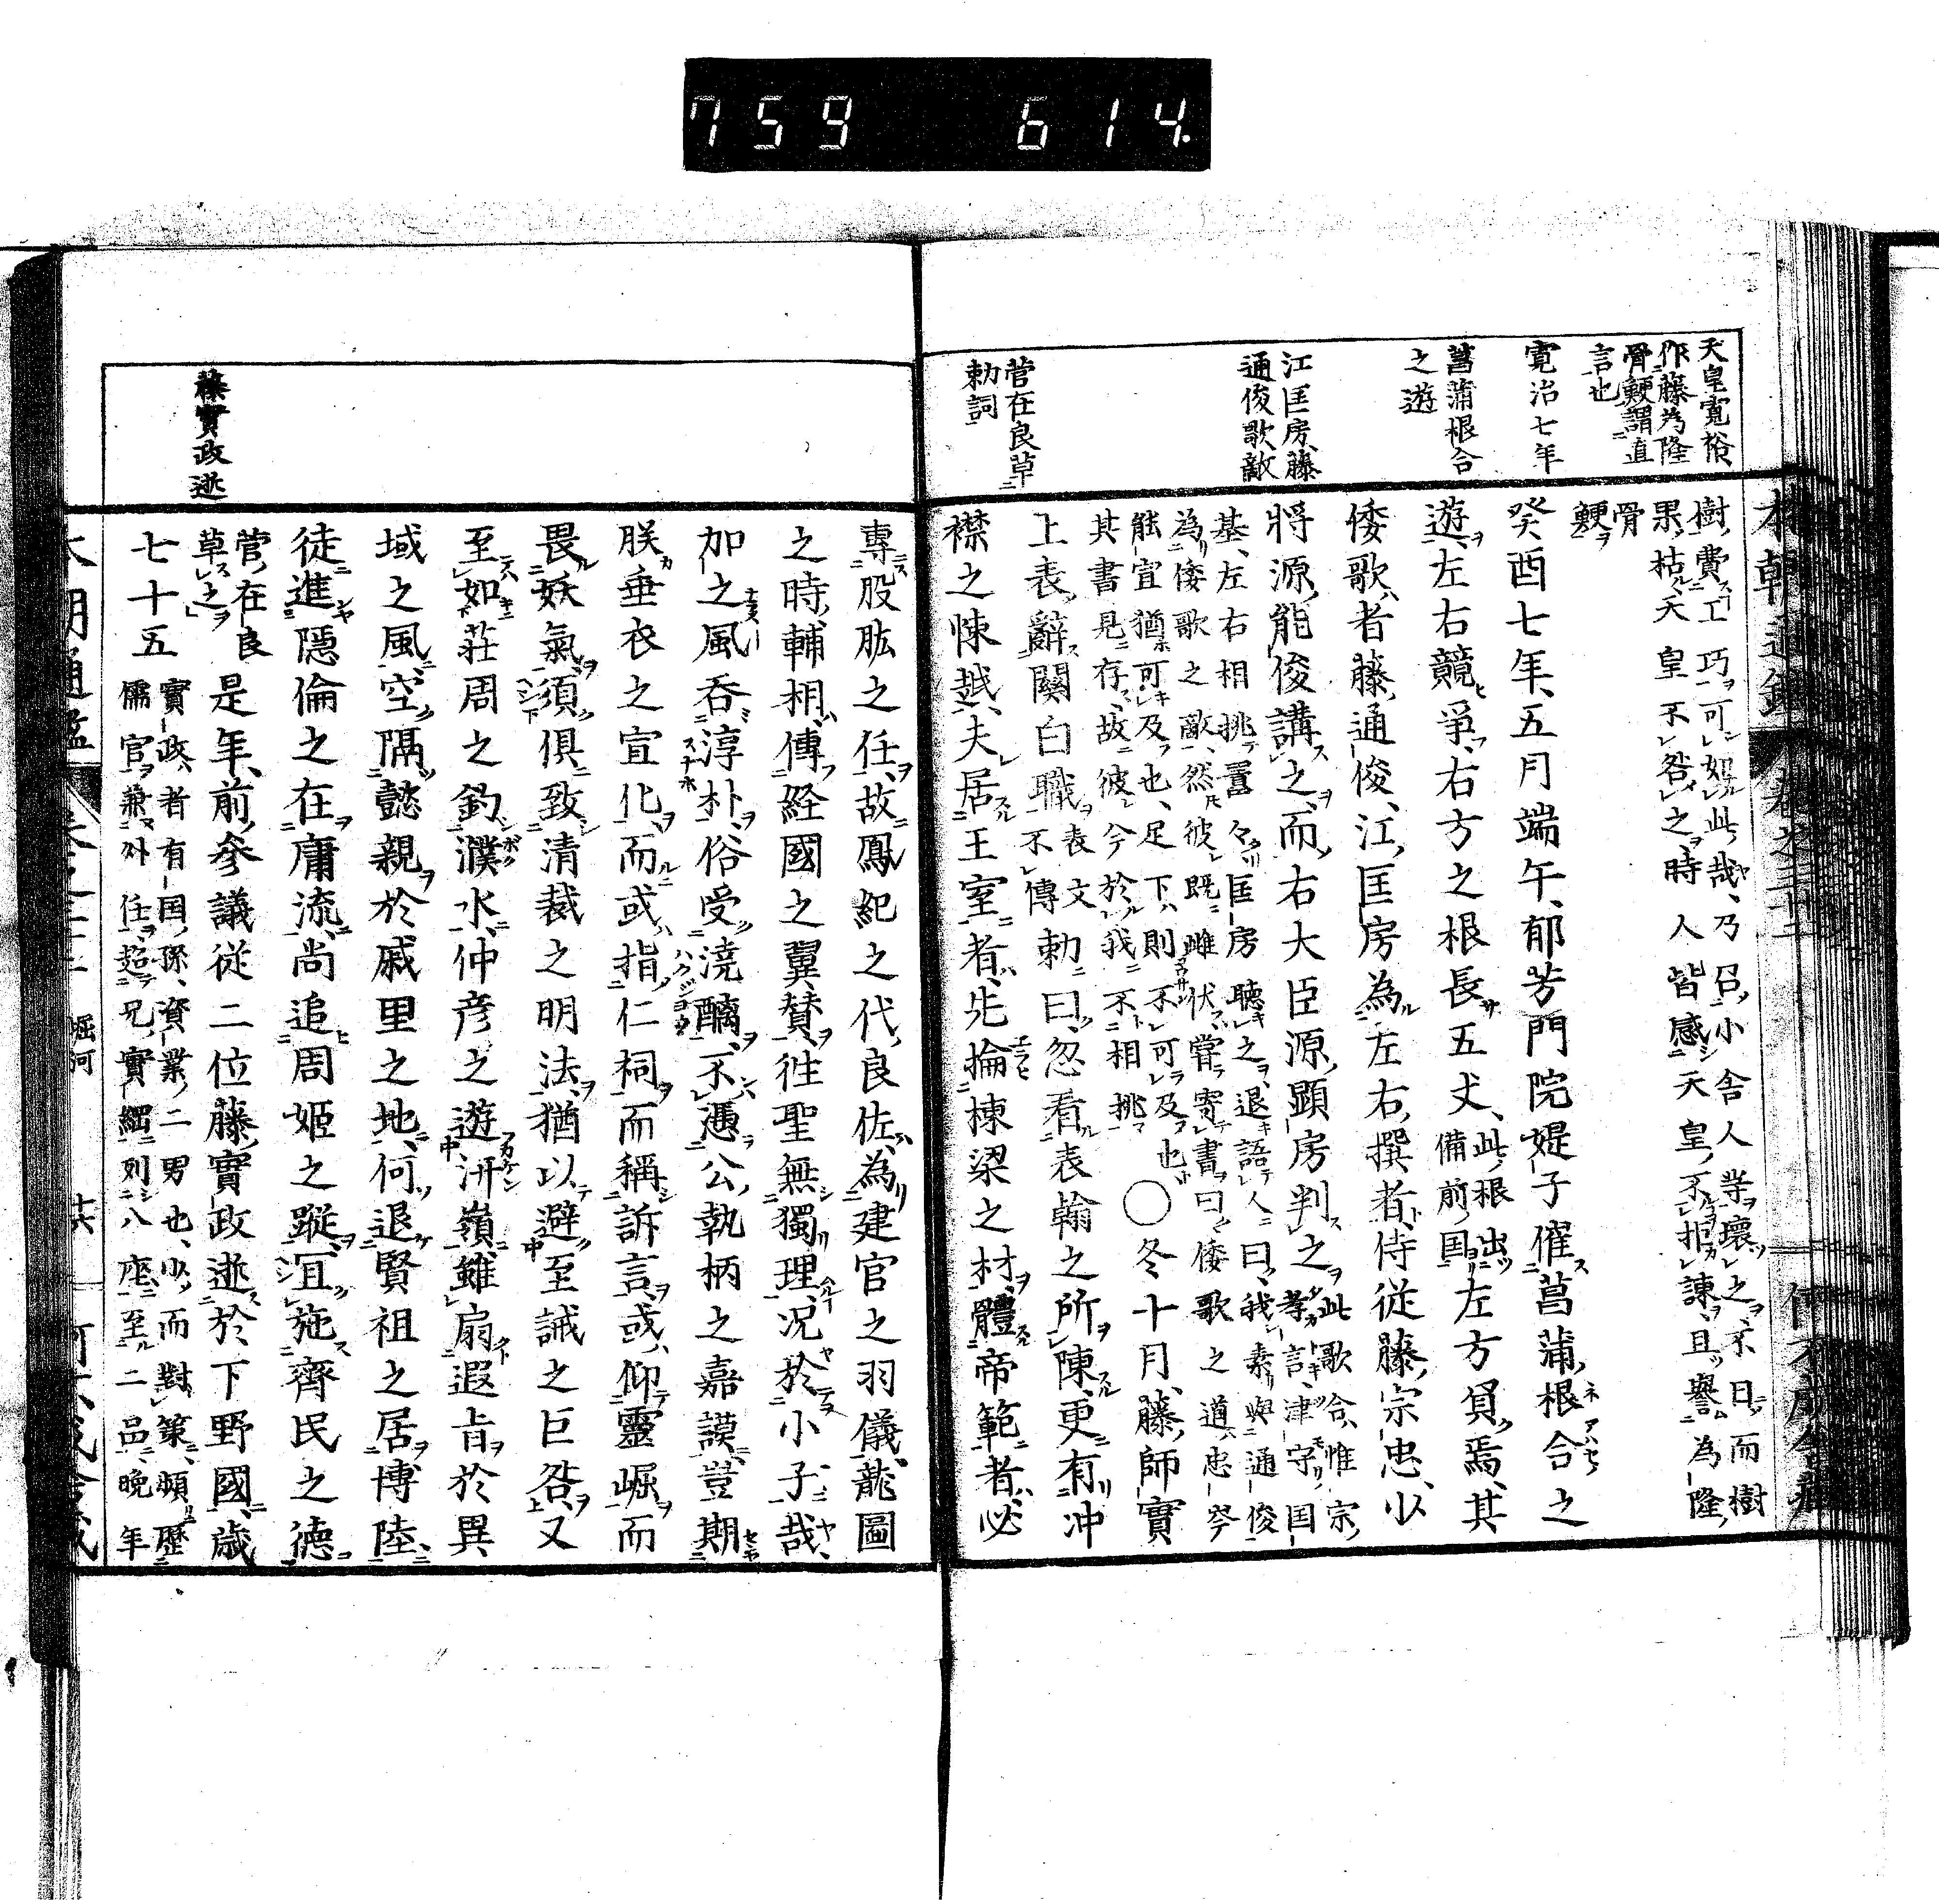 759 614.
天皇寛裕
作藤為隆
骨鯁謂直
言也
寛治七年
菖蒲根合
之遊
江匡房藤
通俊歌敵
菅在良草
勅詞
樹費工巧可恕此哉乃召小舎人等壞之不日而樹
果枯天皇不咎之時人皆感天皇不拒諫且譽為隆
骨
鯁
癸酉七年五月端午郁芳門院媞子催菖蒲根合之
遊左右競爭右方之根長五丈此根出
備前国左方負焉其
倭歌者藤通俊江匡房為左右撰者侍従藤宗忠少
将源能俊講之而右大臣源顕房判之此歌合惟宗
孝言津守国
基左右相挑囂々匡房聴之退語人曰我素與通俊
為倭歌之敵然彼既雌伏嘗寄書曰倭歌之道忠岑
能宣猶可及也足下則不可及也
其書見存故彼今於我不相挑
○冬十月藤師實
上表辭関白職表文
不傳勅曰忽看表翰之所陳更有冲
襟之悚越夫居王室者先掄棟梁之材體帝範者必
藤實政逝
專股肱之任故鳳紀之代良佐為建官之羽儀龍圖
之時輔相傳経國之翼賛徃聖無獨理况於小子哉
加之風呑淳朴俗受澆醨不憑公執柄之嘉謨豈期
朕垂衣之宜化而或指仁祠而稱訴言或仰靈崛而
畏妖氣須俱致清裁之明法猶以避至誡之巨咎又
至如莊周之釣濮水仲彦之遊汧嶺雖扇遐㫖於異
域之風空隔懿親於戚里之地何退賢祖之居博陸
徒進隠倫之在庸流尚追周姫之蹤冝施齊民之德
菅在良
草之
是年前参議従二位藤實政逝於下野國歳
七十五
實政者有国孫資業二男也少而對策頗歴
儒官兼外任超兄實綱列八座至二品晩年
本朝通鑑 堀河 十六